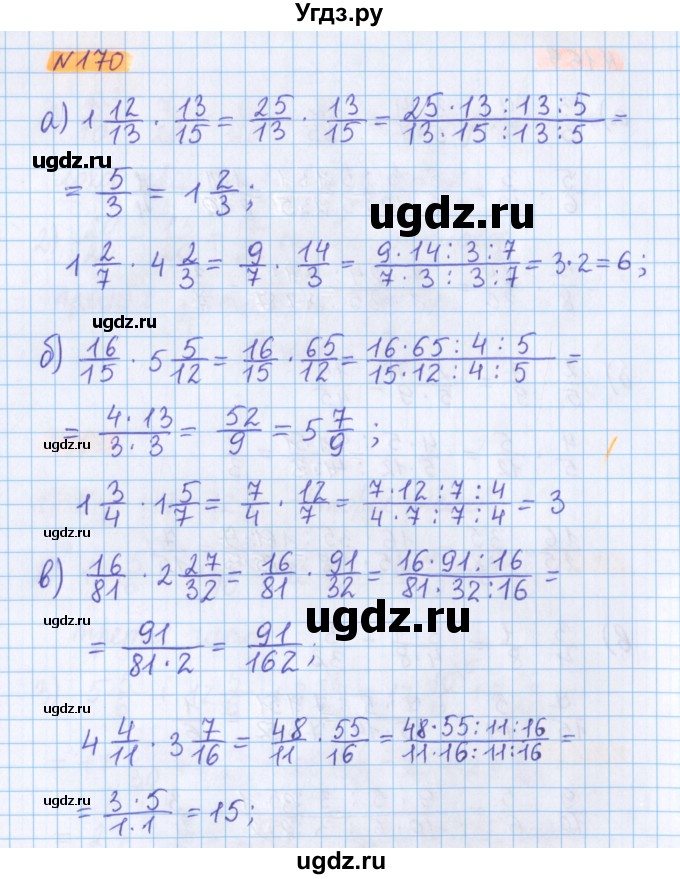 Угдз.ру
N170
а) 1 12/13 · 13/15 = 25/13 · 13/15 = (25·13:13:5)/(13·15:13:5) =
ugdz.ru
= 5/3 = 1 2/3;
ugdz.ru
ugdz.ru
1 2/7 · 4 2/3 = 9/7 · 14/3 = (9·14:3:7)/(7·3:3:7) = 3·2 = 6;
ugdz.ru
б) 16/15 · 5 5/12 = 16/15 · 65/12 = (16·65:4:5)/(15·12:4:5) =
= (4·13)/(3·3) = 52/9 = 5 7/9;
ugdz.ru
1 3/4 · 1 5/7 = 7/4 · 12/7 = (7·12:7:4)/(4·7:7:4) = 3
ugdz.ru
в) 16/81 · 2 27/32 = 16/81 · 91/32 = (16·91:16)/(81·32:16) =
ugdz.ru
ugdz.ru
= 91/(81·2) = 91/162;
ugdz.ru
4 4/11 · 3 7/16 = 48/11 · 55/16 = (48·55:11:16)/(11·16:11:16) =
ugdz.ru
= (3·5)/(1·1) = 15;
ugdz.ru